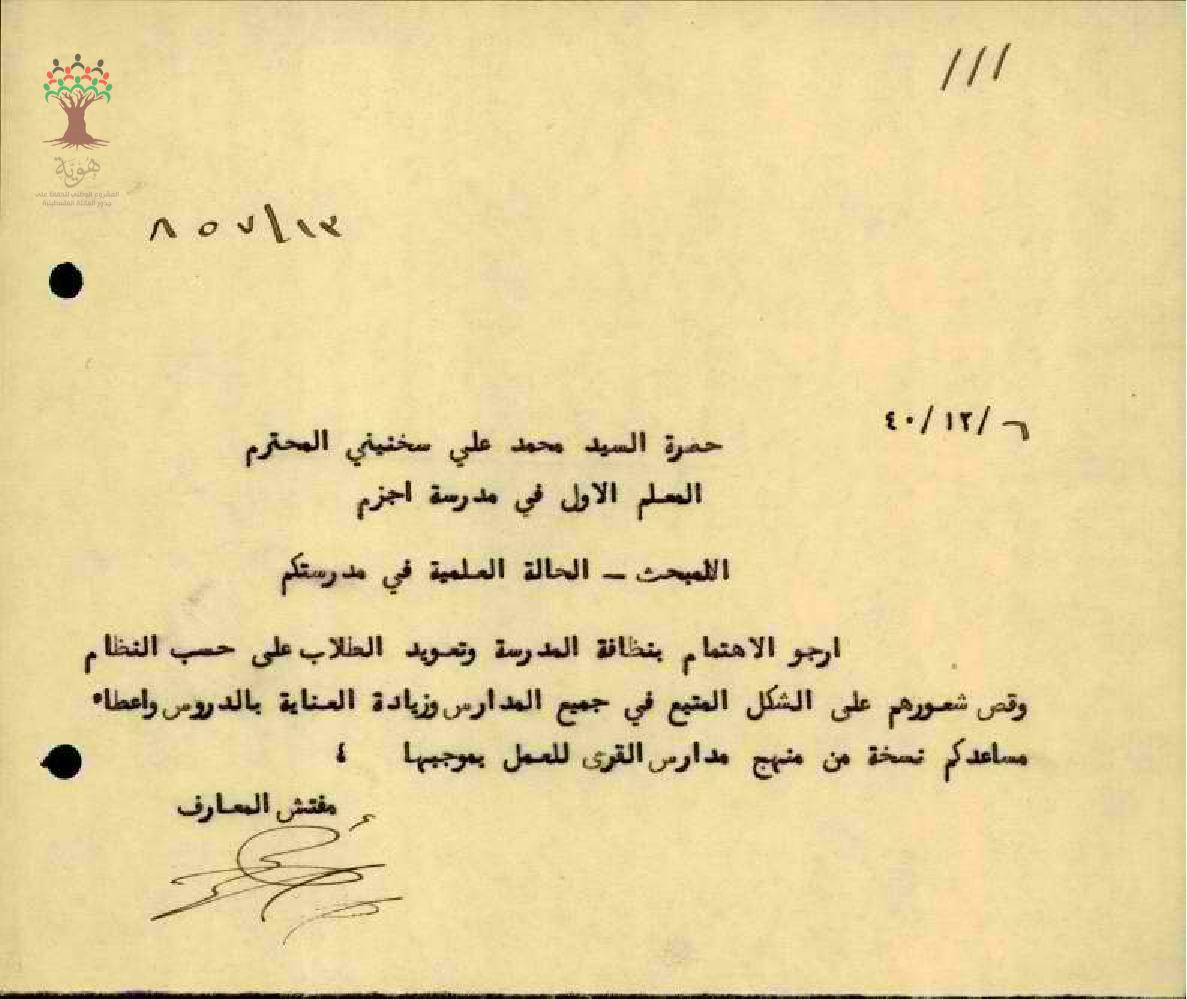 ///
هوية
المشروع الوطني للحفاظ على
جذور العائلة الفلسطينية
٨٥٧/١٣
٤٠/١٢/٦
حضرة السيد محمد علي سخنيني المحترم
المعلم الاول في مدرسة اجزم
اللمبحث – الحالة العلمية في مدرستكم
ارجو الاهتمام بنظافة المدرسة وتعويد الطلاب على حسب النظام
وقص شعورهم على الشكل المتبع في جميع المدارس وزيادة العناية بالدروس واعطاء
مساعدكم نسخة من منهج مدارس القرى للعمل بموجبها ؛
مفتش المعارف